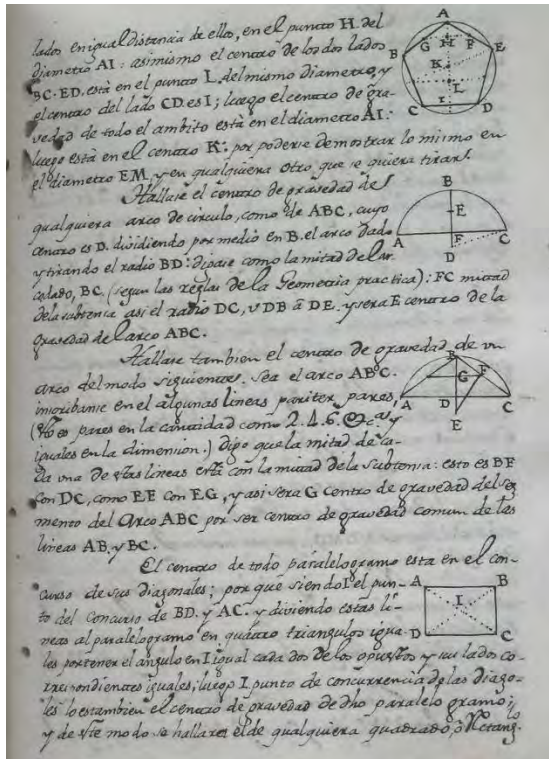 lados en igual distancia de ellos, en el punto H. del
diametro AI: asimismo el centro de los dos lados
BC. ED. està en el punto L. del mismo diametro, y
el centro del lado CD. es I; luego el centro de gra-
vedad de todo el ambito està en el diametro AI:
luego està en el centro K: por poderse demostrar lo mismo en
el diametro EM, y en qualquiera otro que se quiera tirar.
Hallase el centro de gravedad de
qualquiera arco de circulo, como de ABC, cuyo
centro es D. dividiendo por medio en B. el arco dado
y tirando el radio BD: digase como la mitad del ar-
co dado, BC. (segun las reglas de la Geometria practica): FC mitad
de la subtensa asi el radio DC, v DB à DE. y serà E centro de la
gravedad del arco ABC.
Hallase tambien el centro de gravedad de vn
arco del modo siguiente. Sea el arco ABC.
inscribanse en el algunas lineas pariter pares,
(esto es pares en la cantidad como 2.4.6.&c.ª, y
iguales en la dimension.) digo que la mitad de ca-
da vna de estas lineas està con la mitad de la subtensa: esto es BF
con DC, como EF con EG, y asi serà G centro de gravedad del seg
mento del Arco ABC por ser centro de gravedad comun de las
lineas AB. y BC.
El centro de todo paralelogramo esta en el con-
curso de sus diagonales; por que siendo I. el pun-
to del concurso de BD. y AC. y dividiendo estas li-
neas al paralelogramo en quatro triangulos igua-
les por tener el angulo en I igual cada dos de los opuestos y sus lados co-
rrespondientes iguales; luego I punto de concurrencia de las diago-
les lo es tambien el centro de gravedad de dho paralelogramo;
y de este modo se hallarà el de qualquiera quadrado, ò Rectang.lo
A
G
H
F
B
E
K
L
C
I
D
B
E
A
F
C
D
B
G
F
A
D
C
E
A
B
I
D
C